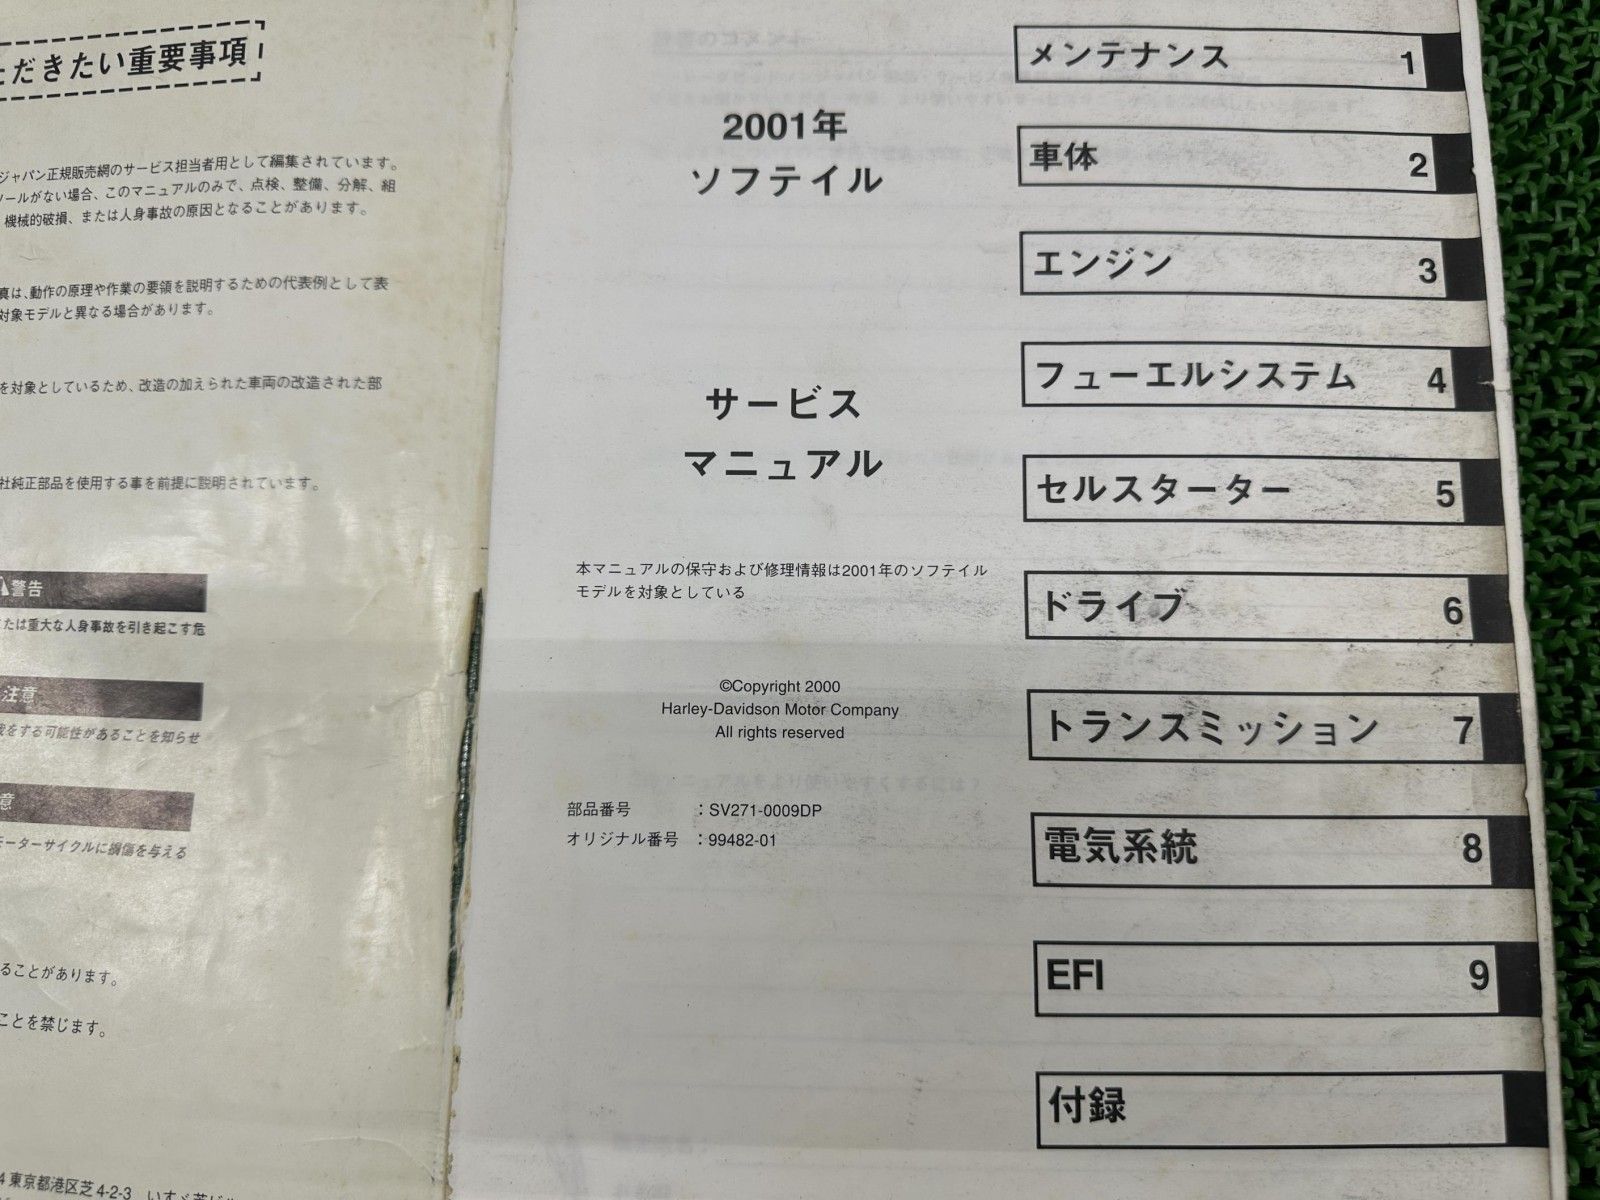 ただきたい重要事項
ジャパン正規販売網のサービス担当者用として編集されています。
ツールがない場合、このマニュアルのみで、点検、整備、分解、組
機械的破損、または人身事故の原因となることがあります。
真は、動作の原理や作業の要領を説明するための代表例として表
対象モデルと異なる場合があります。
を対象としているため、改造の加えられた車両の改造された部
社純正部品を使用する事を前提に説明されています。
警告
たは重大な人身事故を引き起こす危
注意
我をする可能性があることを知らせ
意
モーターサイクルに損傷を与える
ることがあります。
ことを禁じます。
4 東京都港区芝4-2-3
2001年
ソフテイル
サービス
マニュアル
本マニュアルの保守および修理情報は2001年のソフテイル
モデルを対象としている
©Copyright 2000
Harley-Davidson Motor Company
All rights reserved
部品番号 ：SV271-0009DP
オリジナル番号 ：99482-01
メンテナンス 1
車体 2
エンジン 3
フューエルシステム 4
セルスターター 5
ドライブ 6
トランスミッション 7
電気系統 8
EFI 9
付録